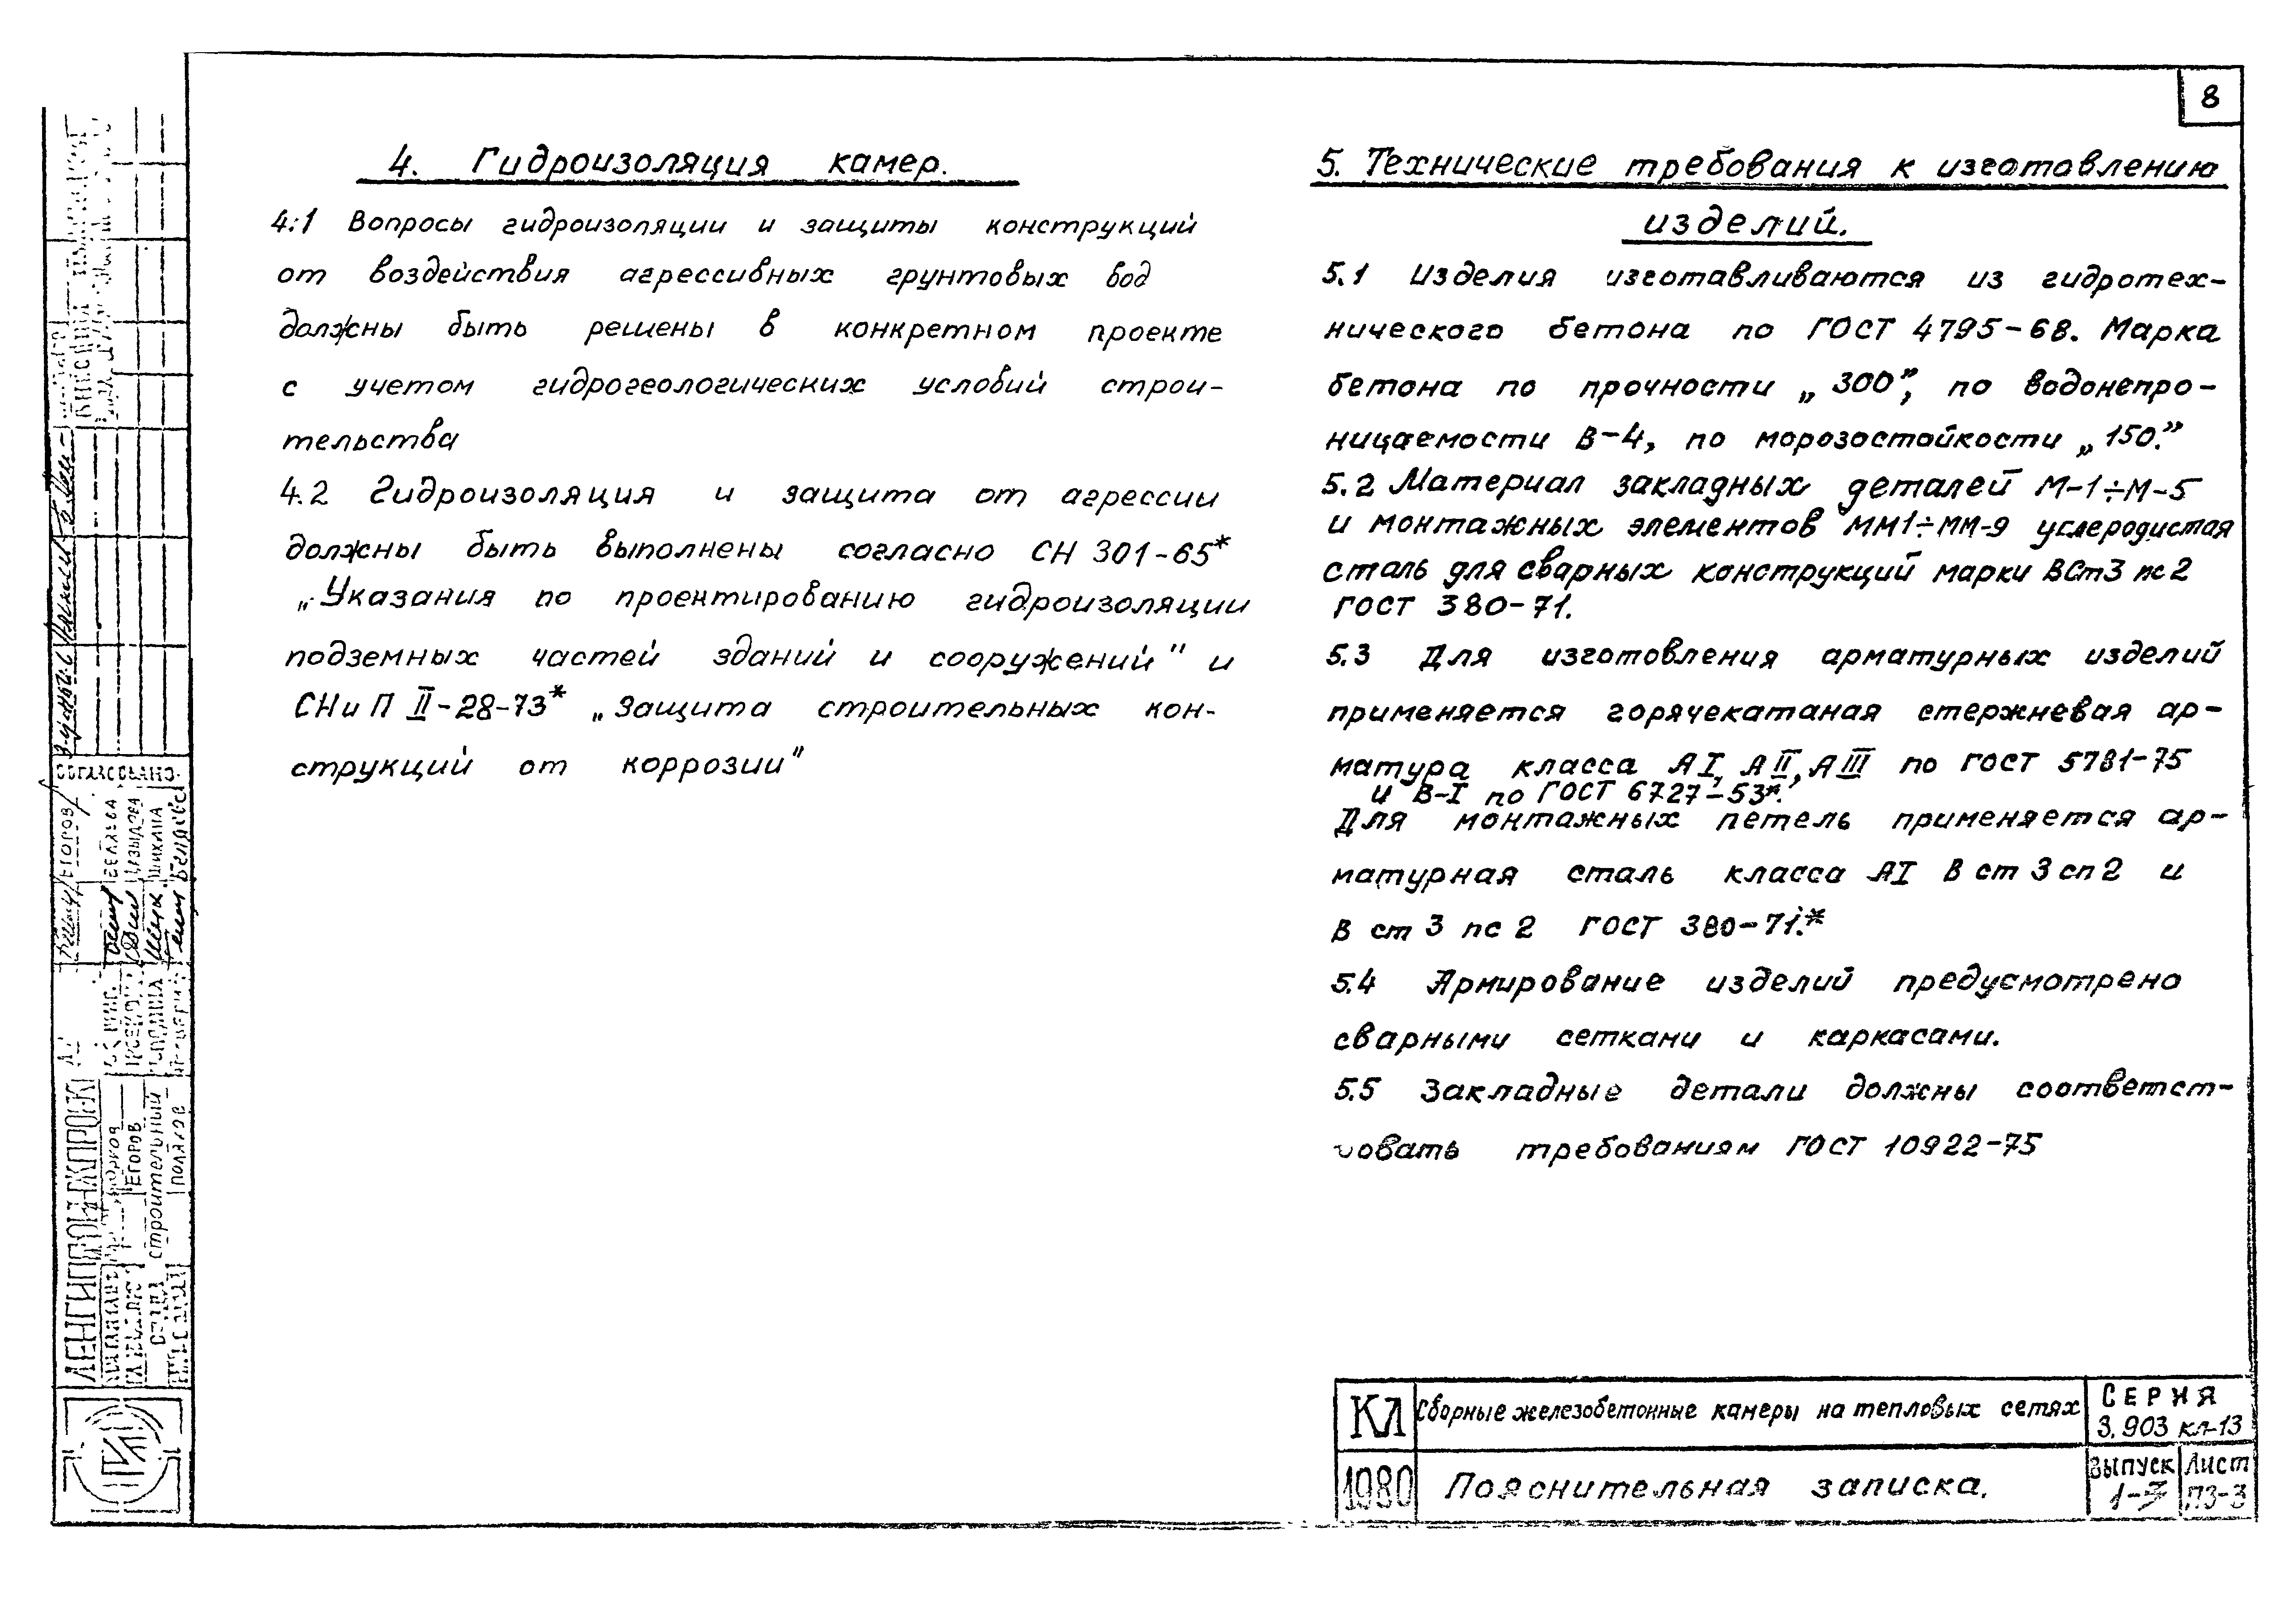 8
4. Гидроизоляция камер.
4.1 Вопросы гидроизоляции и защиты конструкций
от воздействия агрессивных грунтовых вод
должны быть решены в конкретном проекте
с учетом гидрогеологических условий строи-
тельства
4.2 Гидроизоляция и защита от агрессии
должны быть выполнены согласно СН 301-65*
„Указания по проектированию гидроизоляции
подземных частей зданий и сооружений" и
СНиП II-28-73* „Защита строительных кон-
струкций от коррозии"
5. Технические требования к изготовлению
изделий.
5.1 Изделия изготавливаются из гидротех-
нического бетона по ГОСТ 4795-68. Марка
бетона по прочности „300”, по водонепро-
ницаемости В-4, по морозостойкости „150.”
5.2 Материал закладных деталей М-1÷М-5
и монтажных элементов ММ1÷ММ-9 углеродистая
сталь для сварных конструкций марки ВСт3 пс2
ГОСТ 380-71.
5.3 Для изготовления арматурных изделий
применяется горячекатаная стержневая ар-
матура класса АI, АII, АIII по ГОСТ 5781-75
и В-I по ГОСТ 6727-53*.
Для монтажных петель применяется ар-
матурная сталь класса АI В ст 3 сп 2 и
В ст 3 пс 2 ГОСТ 380-71.*
5.4 Армирование изделий предусмотрено
сварными сетками и каркасами.
5.5 Закладные детали должны соответст-
вовать требованиям ГОСТ 10922-75
КЛ Сборные железобетонные камеры на тепловых сетях СЕРИЯ
3.903 кл-13
1980 Пояснительная записка. Выпуск Лист
ПЗ-3
СОГЛАСОВАНО
ЕГОРОВ
БЕЛЯЕВА
ШИХИНА
ЕГОРОВ
строительный
ПОЛЯКОВ